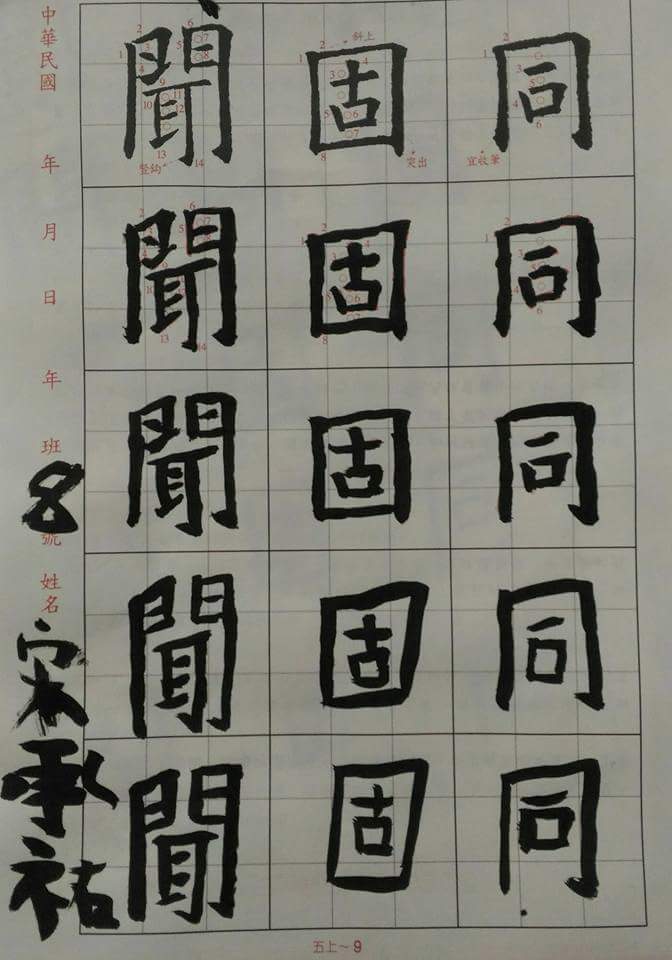 同
同
同
同
同
固
固
固
固
固
聞
聞
聞
聞
聞
斜上
突出
宜收筆
豎鈎
中華民國 年 月 日 年 班 8 號 姓名 宋承祐
五上~9